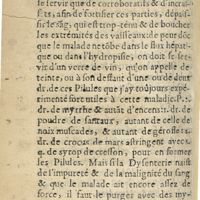 se servir que de corroboratifs & d'incras-
fans, afin de fortifier ces parties, d'épaiss-
sir le sãg, qui est trop tẽnu & de boucher
les extrémités des vaisseaux de peur dõc
que le malade ne tõbe dans le flux hépati-
que ou dans l'hydropisie, on doit se ser-
vir d'un verre de vin, qu'on appelle de
teinte, ou à son deffaut d'une orde demi
dr. de ces Pilules que j'ay toujours expé-
rimẽté fort utiles à cette maladie. P. 3.
dr. de myrrhe & autãt d'encens, dr. de
poudre de santaux, autant de celle de
noix muscades, & autant de gérofles 2.
dr. de crocus de mars astringent avec s.
q. de syrop de cresson, pour en former
les Pilules. Mais si la Dysenterie naist
de l'impureté & de la malignité du sang
& que le malade ait encore assez de
force, il faut le purger avec des my-